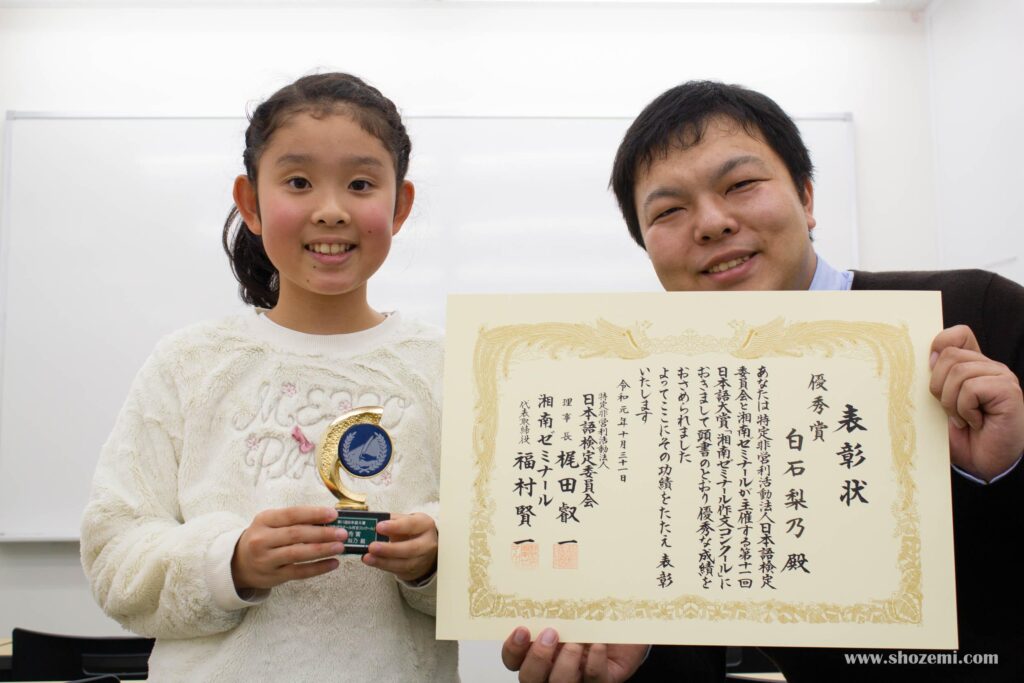 表彰状
優秀賞
白石梨乃 殿
あなたは特定非営利活動法人日本語検定
委員会と湘南ゼミナールが主催する第十一回
日本語大賞「湘南ゼミナール作文コンクール」に
おきまして頭書のとおり優秀な成績を
おさめられました
よってここにその功績をたたえ 表彰
いたします
令和元年十月三十一日
特定非営利活動法人
日本語検定委員会
理事長 梶田叡一
湘南ゼミナール
代表取締役 福村賢一
www.shozemi.com